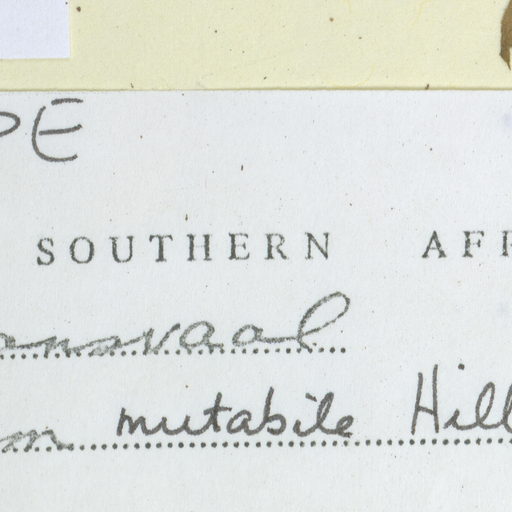 PE
SOUTHERN AFR
ansvaal
m mutabile Hill